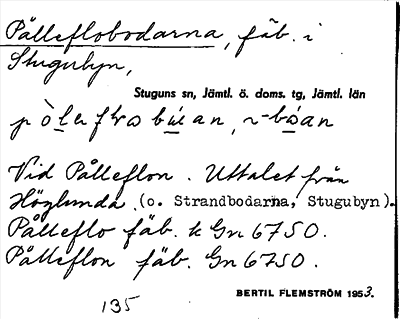 Pålleflobodarna, fäb. i
Stugubyn,
Stuguns sn, Jämtl. ö. doms. tg, Jämtl. län
Vid Pålleflon. Uttalet från
Höglunda. (o. Strandbodarna, Stugubyn).
Pålleflo fäb. k Gn 6750.
Pålleflon fäb. Gn 6750.
135
BERTIL FLEMSTRÖM 1953.